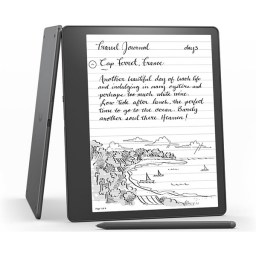 Travel Journal day 3
Cap Ferret, France
Another beautiful day of beach life
and indulging in many oysters and
perhaps too much white wine.
Low tide after lunch... the perfect
time to go to the ocean. Barely
another soul there. Heaven!